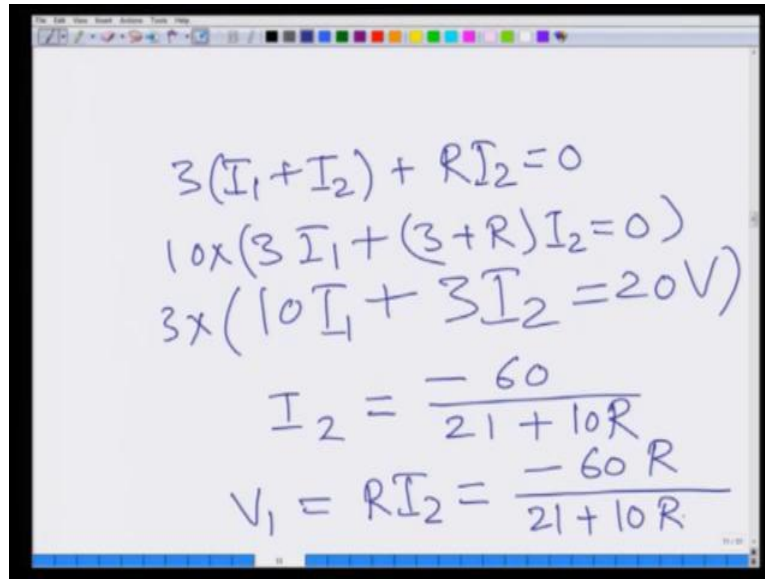 File Edit View Insert Actions Tools Help
3(I₁+I₂) + RI₂=0
10×(3I₁+(3+R)I₂=0)
3×(10I₁+3I₂=20V)
I₂ = -60/(21+10R)
V₁ = RI₂ = -60R/(21+10R)